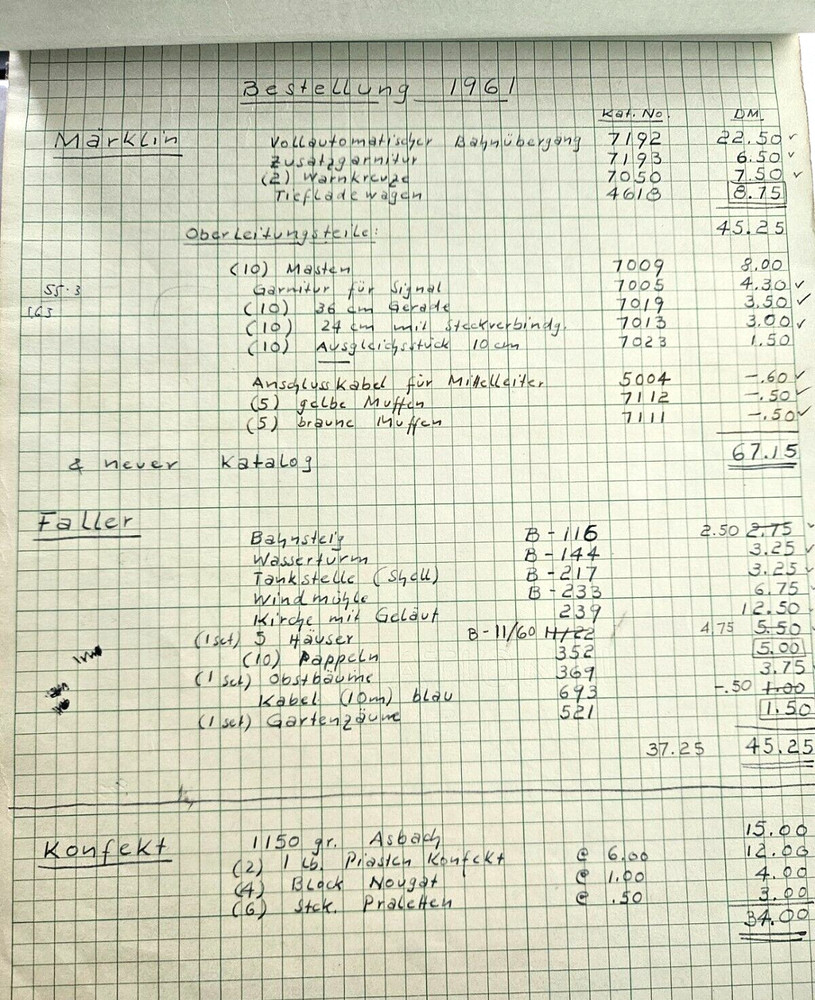 Bestellung 1961
Kat. No. DM.
Märklin Vollautomatischer Bahnübergang 7192 22.50 ✓
Zusatzgarnitur 7193 6.50 ✓
(2) Warnkreuze 7050 7.50 ✓
Tiefladewagen 4618 8.75
Oberleitungsteile: 45.25
(10) Masten 7009 8.00
55.3 Garnitur für Signal 7005 4.30 ✓
(10) 36 cm Gerade 7019 3.50 ✓
(10) 24 cm mit Steckverbindg. 7013 3.00 ✓
(10) Ausgleichsstück 10 cm 7023 1.50
Anschluss Kabel für Mittelleiter 5004 -.60 ✓
(5) gelbe Muffen 7112 -.50 ✓
(5) braune Muffen 7111 -.50 ✓
67.15
& neuer Katalog
Faller
Bahnsteig B-116 2.50 2.75 ✓
Wasserturm B-144 3.25 ✓
Tankstelle (Shell) B-217 3.25 ✓
Windmühle B-233 6.75 ✓
Kirche mit Geläut 239 12.50 ✓
(1 set) 5 Häuser B-11/60 H/22 4.75 5.50 ✓
(10) Pappeln 352 5.00
(1 set) Obstbäume 369 3.75
Kabel (10m) blau 693 -.50 1.00
(1 set) Gartenzäune 521 1.50
37.25 45.25
Konfekt 1150 gr. Asbach 15.00
(2) 1 lb. Piasten Konfekt @ 6.00 12.00
(4) Block Nougat @ 1.00 4.00
(6) Stck. Praletten @ .50 3.00
34.00